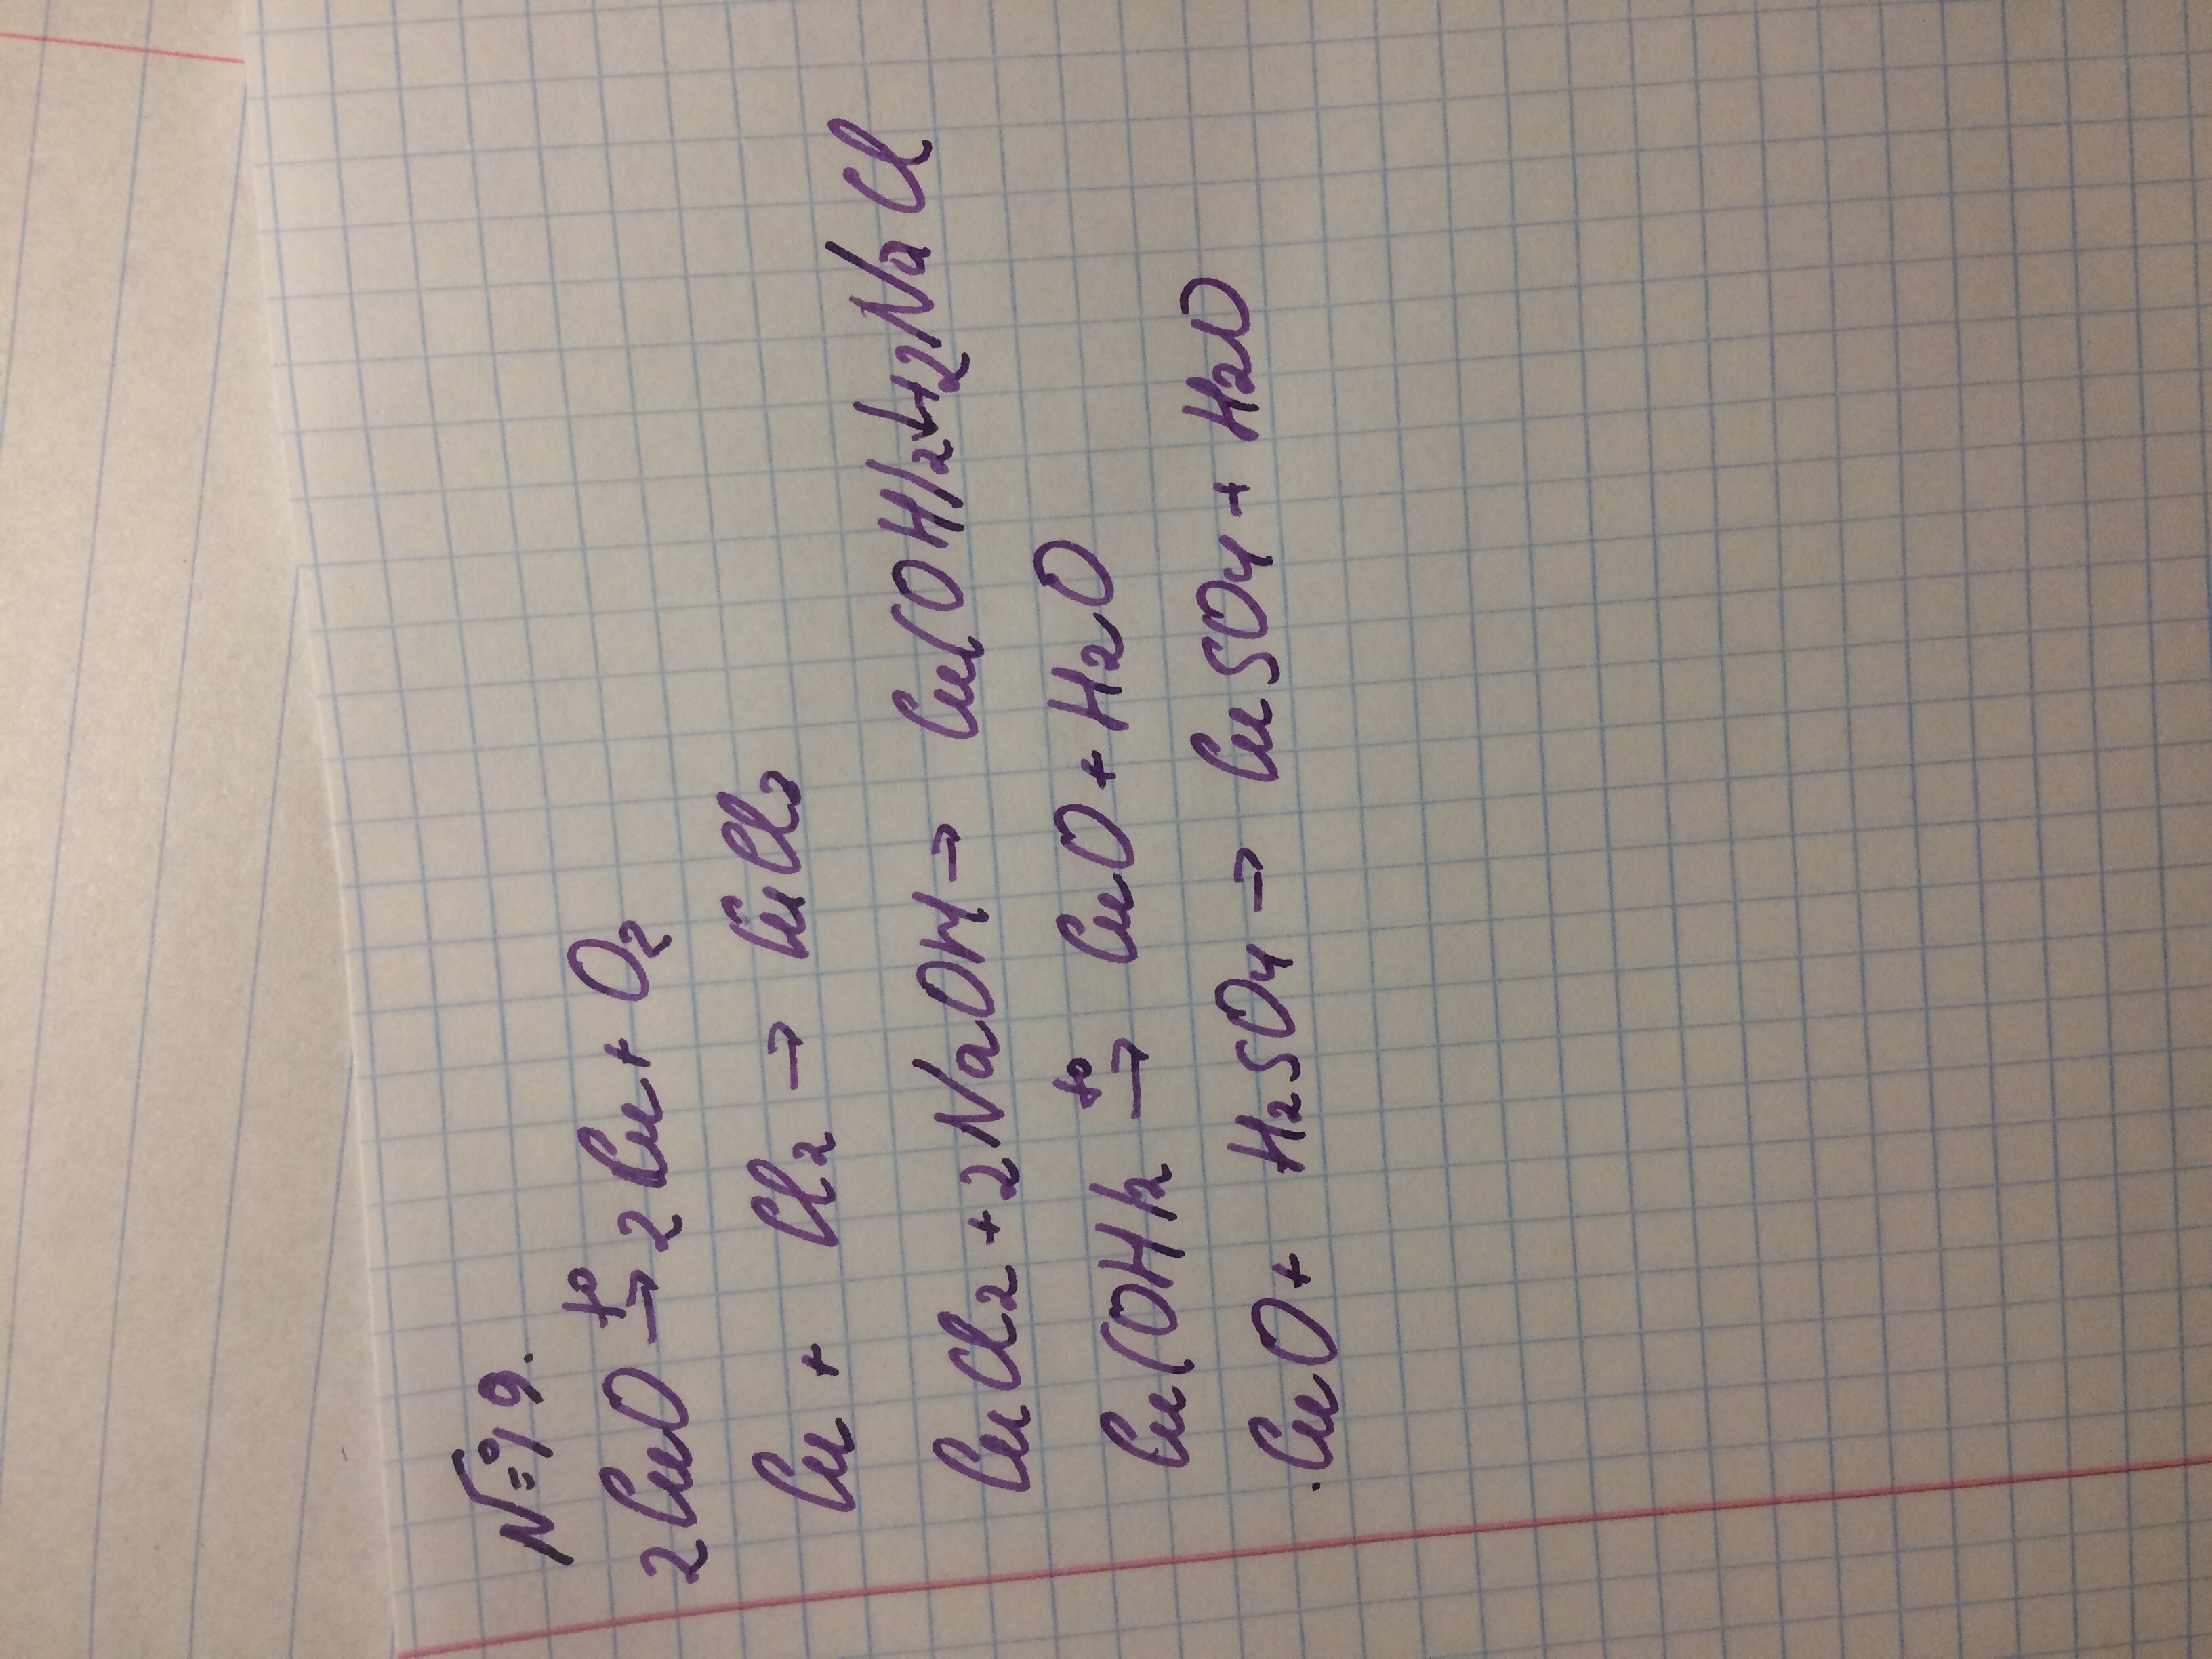 №19.
2CuO t°→ 2Cu + O₂
Cu + Cl₂ → CuCl₂
CuCl₂ + 2NaOH → Cu(OH)₂↓ + 2NaCl
Cu(OH)₂ t°→ CuO + H₂O
CuO + H₂SO₄ → CuSO₄ + H₂O